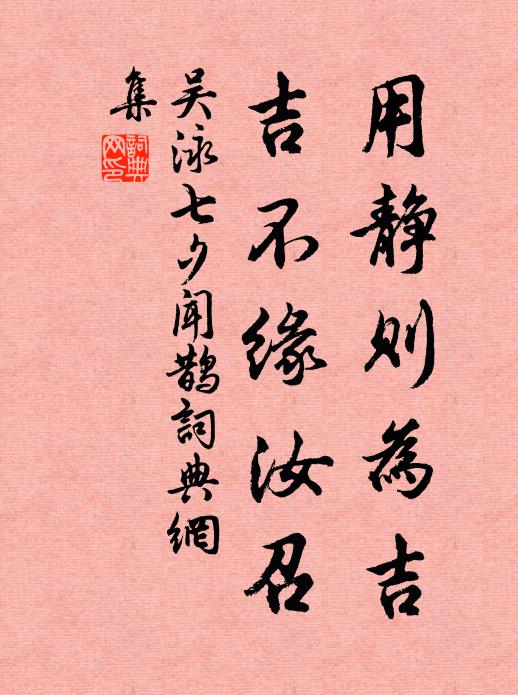 用静则為吉
吉不缘汝召
吴泳七夕闻鹊詞典網
集
詞典
网印